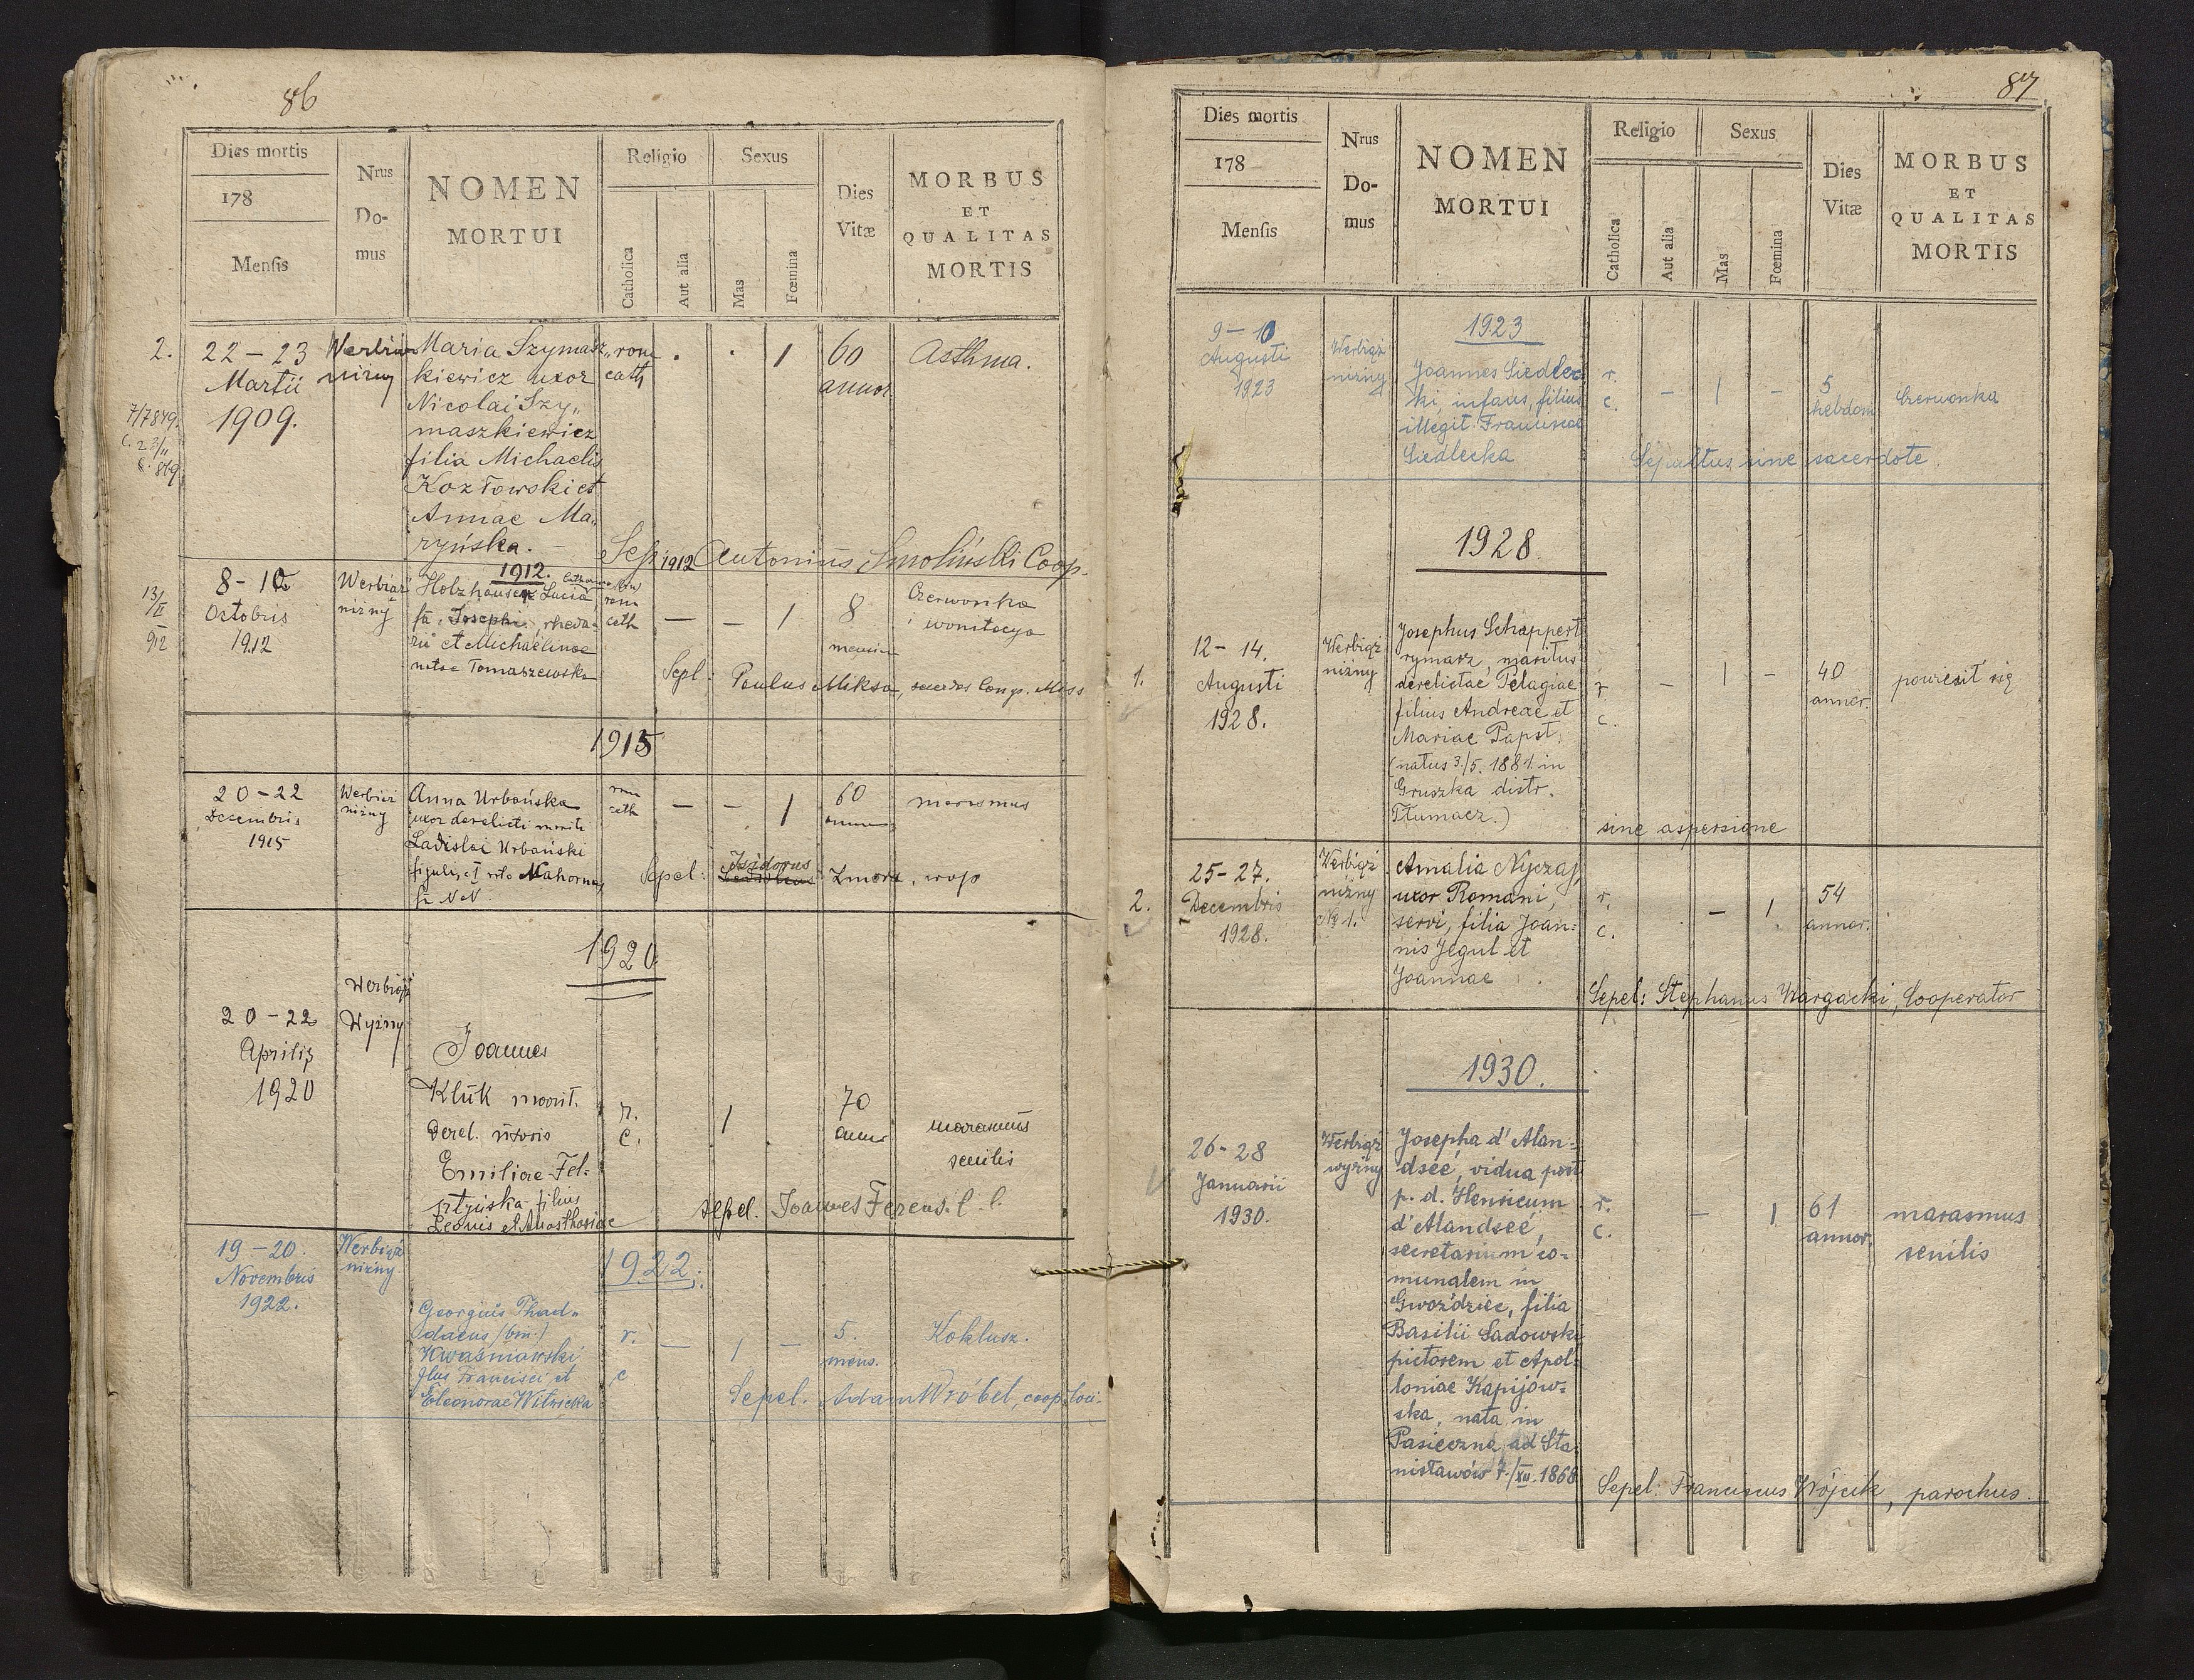 86
Dies mortis
178
Mensis
Nrus
Do-
mus
NOMEN
MORTUI
Religio
Catholica
Aut alia
Sexus
Mas
Fœmina
Dies
Vitæ
MORBUS
ET
QUALITAS
MORTIS
2.
22 – 23
Martii
1909.
niżny
Maria Szymasz„
kiewicz uxor
Nicolai Szy„
maszkiewicz
filia Michaelis
Kozłowski et
Annae Ma„
ryńska. –
rom
cath
1
60
annor
Asthma.
Sep. 1912 Antonius Smoliński Coop.
1912.
13/II
912
8 – 10
Octobris
1912
Werbiąż
niżny
Holzhauser Lucia
fa. Josephi, rheda-
rii et Michaelinae
natae Tomaszewska
rom
cath
— — 1
8
mensium
Czerwonka
i womitacya
Sepl: Paulus Miksa, sacerdos Cong. Miss
1915
20 – 22
Decembris
1915
Werbiąż
niżny
Anna Urbańska
uxor derelicti mariti
Ladislai Urbański
figuli, et I voto Nahorna,
fa NN.
rom
cath
— — 1
60
annor
marasmus
Sepel: Isidorus Zmora, wojs
1920.
20 – 22
Aprilis
1920
Werbiąż
Wyżny
Joannes
Kluk marit.
derel. uxoris
Emiliae Fel-
sztyńska, filius
Leonis et Anasthasiae
r.
c.
1
70
annor
marasmus
senilis
sepel. Joannes Ferens. l. l.
1922.
19 – 20.
Novembris
1922.
Werbiąż
niżny.
Georgius Thad„
daeus (bin.)
Kwaśniewski
flus Francisci et
Eleonorae Witwicka
r.
c
— 1 —
5.
mens.
Koklusz.
Sepel. Adam Wróbel, coop. loci.
87
Dies mortis
178
Mensis
Nrus
Do-
mus
NOMEN
MORTUI
Religio
Catholica
Aut alia
Sexus
Mas
Fœmina
Dies
Vitæ
MORBUS
ET
QUALITAS
MORTIS
1923
9 – 10
Augusti
1923
Werbiąż
niżny
Joannes Siedlec-
ki, infans, filius
illegit. Franciscae
Siedlecka
r.
c.
— 1 —
5
hebdom
Czerwonka
Sepultus sine sacerdote.
1928.
1.
12 – 14.
Augusti
1928.
Werbiąż
niżny
Josephus Schappert
rymarz, maritus
derelictae Pelagiae
filius Andreae et
Mariae Papst.
(natus 3./5. 1881. in
Gruszka distr.
Tłumacz.)
r.
c.
— 1 —
40
annor.
powiesił się
sine aspersione
2.
25 – 27.
Decembris
1928.
Werbiąż
niżny
№ 1.
Amalia Nyczaj,
uxor Romani,
servi, filia Joan-
nis Jegul et
Joannae
r.
c.
— 1
54
annor.
Sepel: Stephanus Wargacki, Cooperator
1930.
26 – 28
Januarii
1930.
Werbiąż
wyżny
Josepha d'Alan-
dseé, vidua post
p. d. Henricum
d'Alandseé,
secretarium co-
munalem in
Gwoździec, filia
Basilii Sadowski
pictorem et Apol-
loniae Kapijow-
ska, nata in
Pasieczna ad Sta-
nisławów 7./XII. 1868
r.
c.
— 1
61
annor.
marasmus
senilis
Sepel: Franciscus Wójcik, parochus.